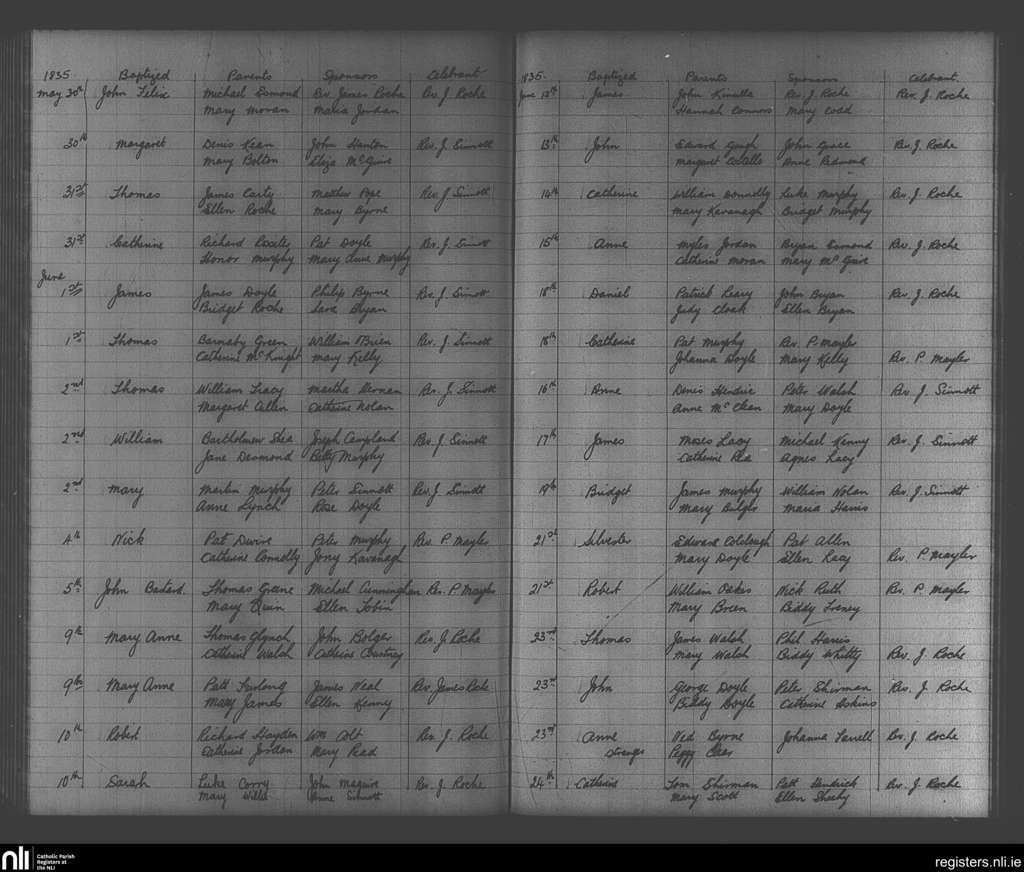 1835 Baptized Parents Sponsors Celebrant
May 30th John Felix Michael Desmond Rev. James Roche Rev. J. Roche
Mary Moran Maria Jordan
30th Margaret Denis Kean John Hanton Rev. J. Sinnott
Mary Bolton Eliza McGuire
31st Thomas James Carty Matthew Pope Rev. J. Sinnott
Ellen Roche Mary Byrne
31st Catherine Richard Pat Doyle Rev. J. Sinnott
Honor Murphy Mary Anne Murphy
June
1st James James Doyle Philip Byrne Rev. J. Sinnott
Bridget Roche Sara Bryan
1st Thomas Barnaby Green William O'Brien Rev. J. Sinnott
Catherine McKnight Mary Kelly
2nd Thomas William Tracy Martha Rev. J. Sinnott
Margaret Cullen Catherine Nolan
2nd William Bartholmew Shea Joseph Rev. J. Sinnott
Jane Desmond Betty Murphy
2nd Mary Martin Murphy Peter Sinnott Rev. J. Sinnott
Anne Lynch Rose Doyle
4th Nick Pat Dwire Peter Murphy Rev. P. Mayler
Catherine Connolly Kavanagh
5th John Bastard. Thomas Greene Michael Cunningham Rev. P. Mayler
Mary Quin Ellen Tobin
9th Mary Anne Thomas Glynch John Bolger Rev. J. Roche
Catherine Walsh Catherine
9th Mary Anne Patt Furlong James Neal Rev. James Roche
Mary James Ellen Kenny
10th Robert Richard Hayden Wm Colt Rev. J. Roche
Catherine Jordan Mary Read
10th Sarah Luke Corry John Maguire Rev. J. Roche
Mary Willis Anne Sinnott
1835. Baptized Parents Sponsors Celebrant.
June 12th James John Kinsella Rev. J. Roche Rev. J. Roche
Hannah Connors Mary Coad
13th John Edward Gough John Grace Rev. J. Roche
Margaret Costello Anne Redmond
14th Catherine William Donnolly Luke Murphy Rev. J. Roche
Mary Kavanagh Bridget Murphy
15th Anne Myles Jordan Bryan Rev. J. Roche
Catherine Moran Mary McGuire
18th Daniel Patrick Leary John Bryan Rev. J. Roche
Judy Cloak Ellen Bryan
18th Catherine Pat Murphy Rev. P. Mayler
Johanna Doyle Mary Kelly Rev. P. Mayler
16th Anne Denis Hendric Peter Walsh Rev. J. Sinnott
Anne McClean Mary Doyle
17th James Moses Lacy Michael Kenny Rev. J. Sinnott
Catherine Rea Agnes Lacy
19th Bridget James Murphy William Nolan Rev. J. Sinnott
Mary Bulger Maria Harris
21st Silvester Edward Colclough Pat Allen
Mary Doyle Ellen Lacy Rev. P. Mayler
21st Robert William Oakes Nick Ruth Rev. P. Mayler
Mary Breen Biddy
23rd Thomas James Walsh Phil. Harris
Mary Walsh Biddy Whitty Rev. J. Roche
23rd John George Doyle Peter Shirman Rev. J. Roche
Biddy Doyle Catherine
23rd Anne Ned Byrne Johanna Farrell Rev. J. Roche
Strange Peggy
24th Catherine Tom Shirman Patt Hendrick Rev. J. Roche
Mary Scott Ellen Sheehy
nli Catholic Parish
Registers at
the NLI
registers.nli.ie